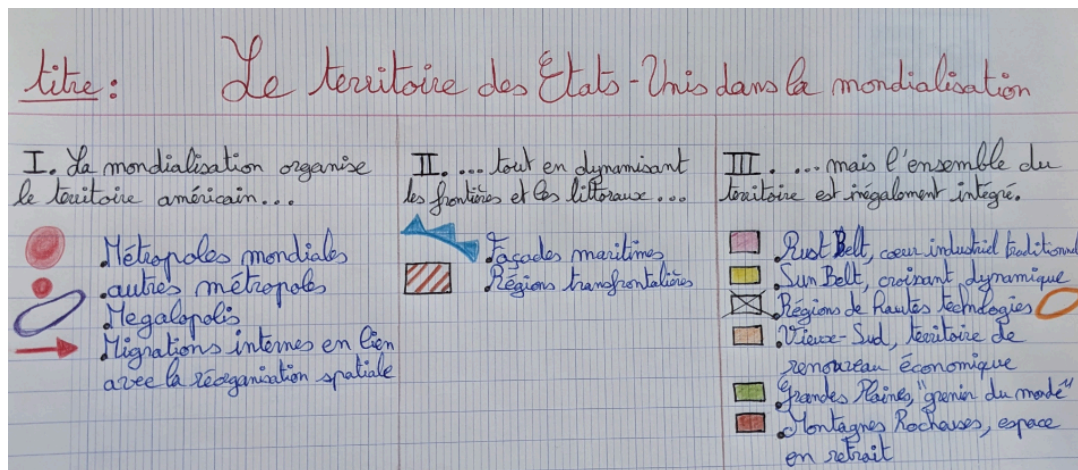 titre : Le territoire des États-Unis dans la mondialisation
I. La mondialisation organise
le territoire américain...
. Métropoles mondiales
. autres métropoles
. Megalopolis
. Migrations internes en lien
avec la réorganisation spatiale
II. ....tout en dynamisant
les frontières et les littoraux...
. Façades maritimes
. Régions transfrontalières
III. ....mais l'ensemble du
territoire est inégalement intégré.
. Rust Belt, cœur industriel traditionnel
. Sun Belt, croissant dynamique
. Régions de hautes technologies
. Vieux-Sud, territoire de
renouveau économique
. Grandes Plaines, "grenier du monde"
. Montagnes Rocheuses, espace
en retrait